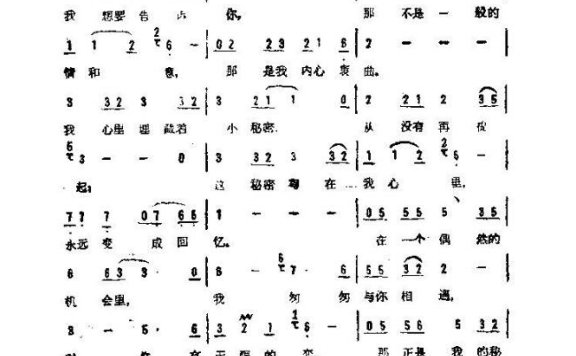 我 想要 告 你， 那 不是 一 般的
1 1 2 2 6 - 0 2 2 3 2 1 6 2 - - -
情 和 意， 那 是我 内心 衷 曲。
3 3 2 3 3 2 3 2 1 1 0 2 2 1 2 3 5
我 心里 埋 藏着 小 秘密， 从 没有 再 提
6 3 - - 0 3 3 2 3 3 2 1 1 2 2 6 -
起； 这 秘密 在 我 心 里，
7 7 7 0 7 6 6 1 - - - 0 5 5 5 5 3 5
永远 变 成回 忆。 在 一个 偶 然的
6 6 3 3 0 6 - 6 7 6 5 5 3 2 2 -
机 会里， 我 匆 匆 与你 相 遇，
3 - 5 6 3 2 1 6 1 - 0 5 5 6 3 2
的 变 那 正是 我 的秘